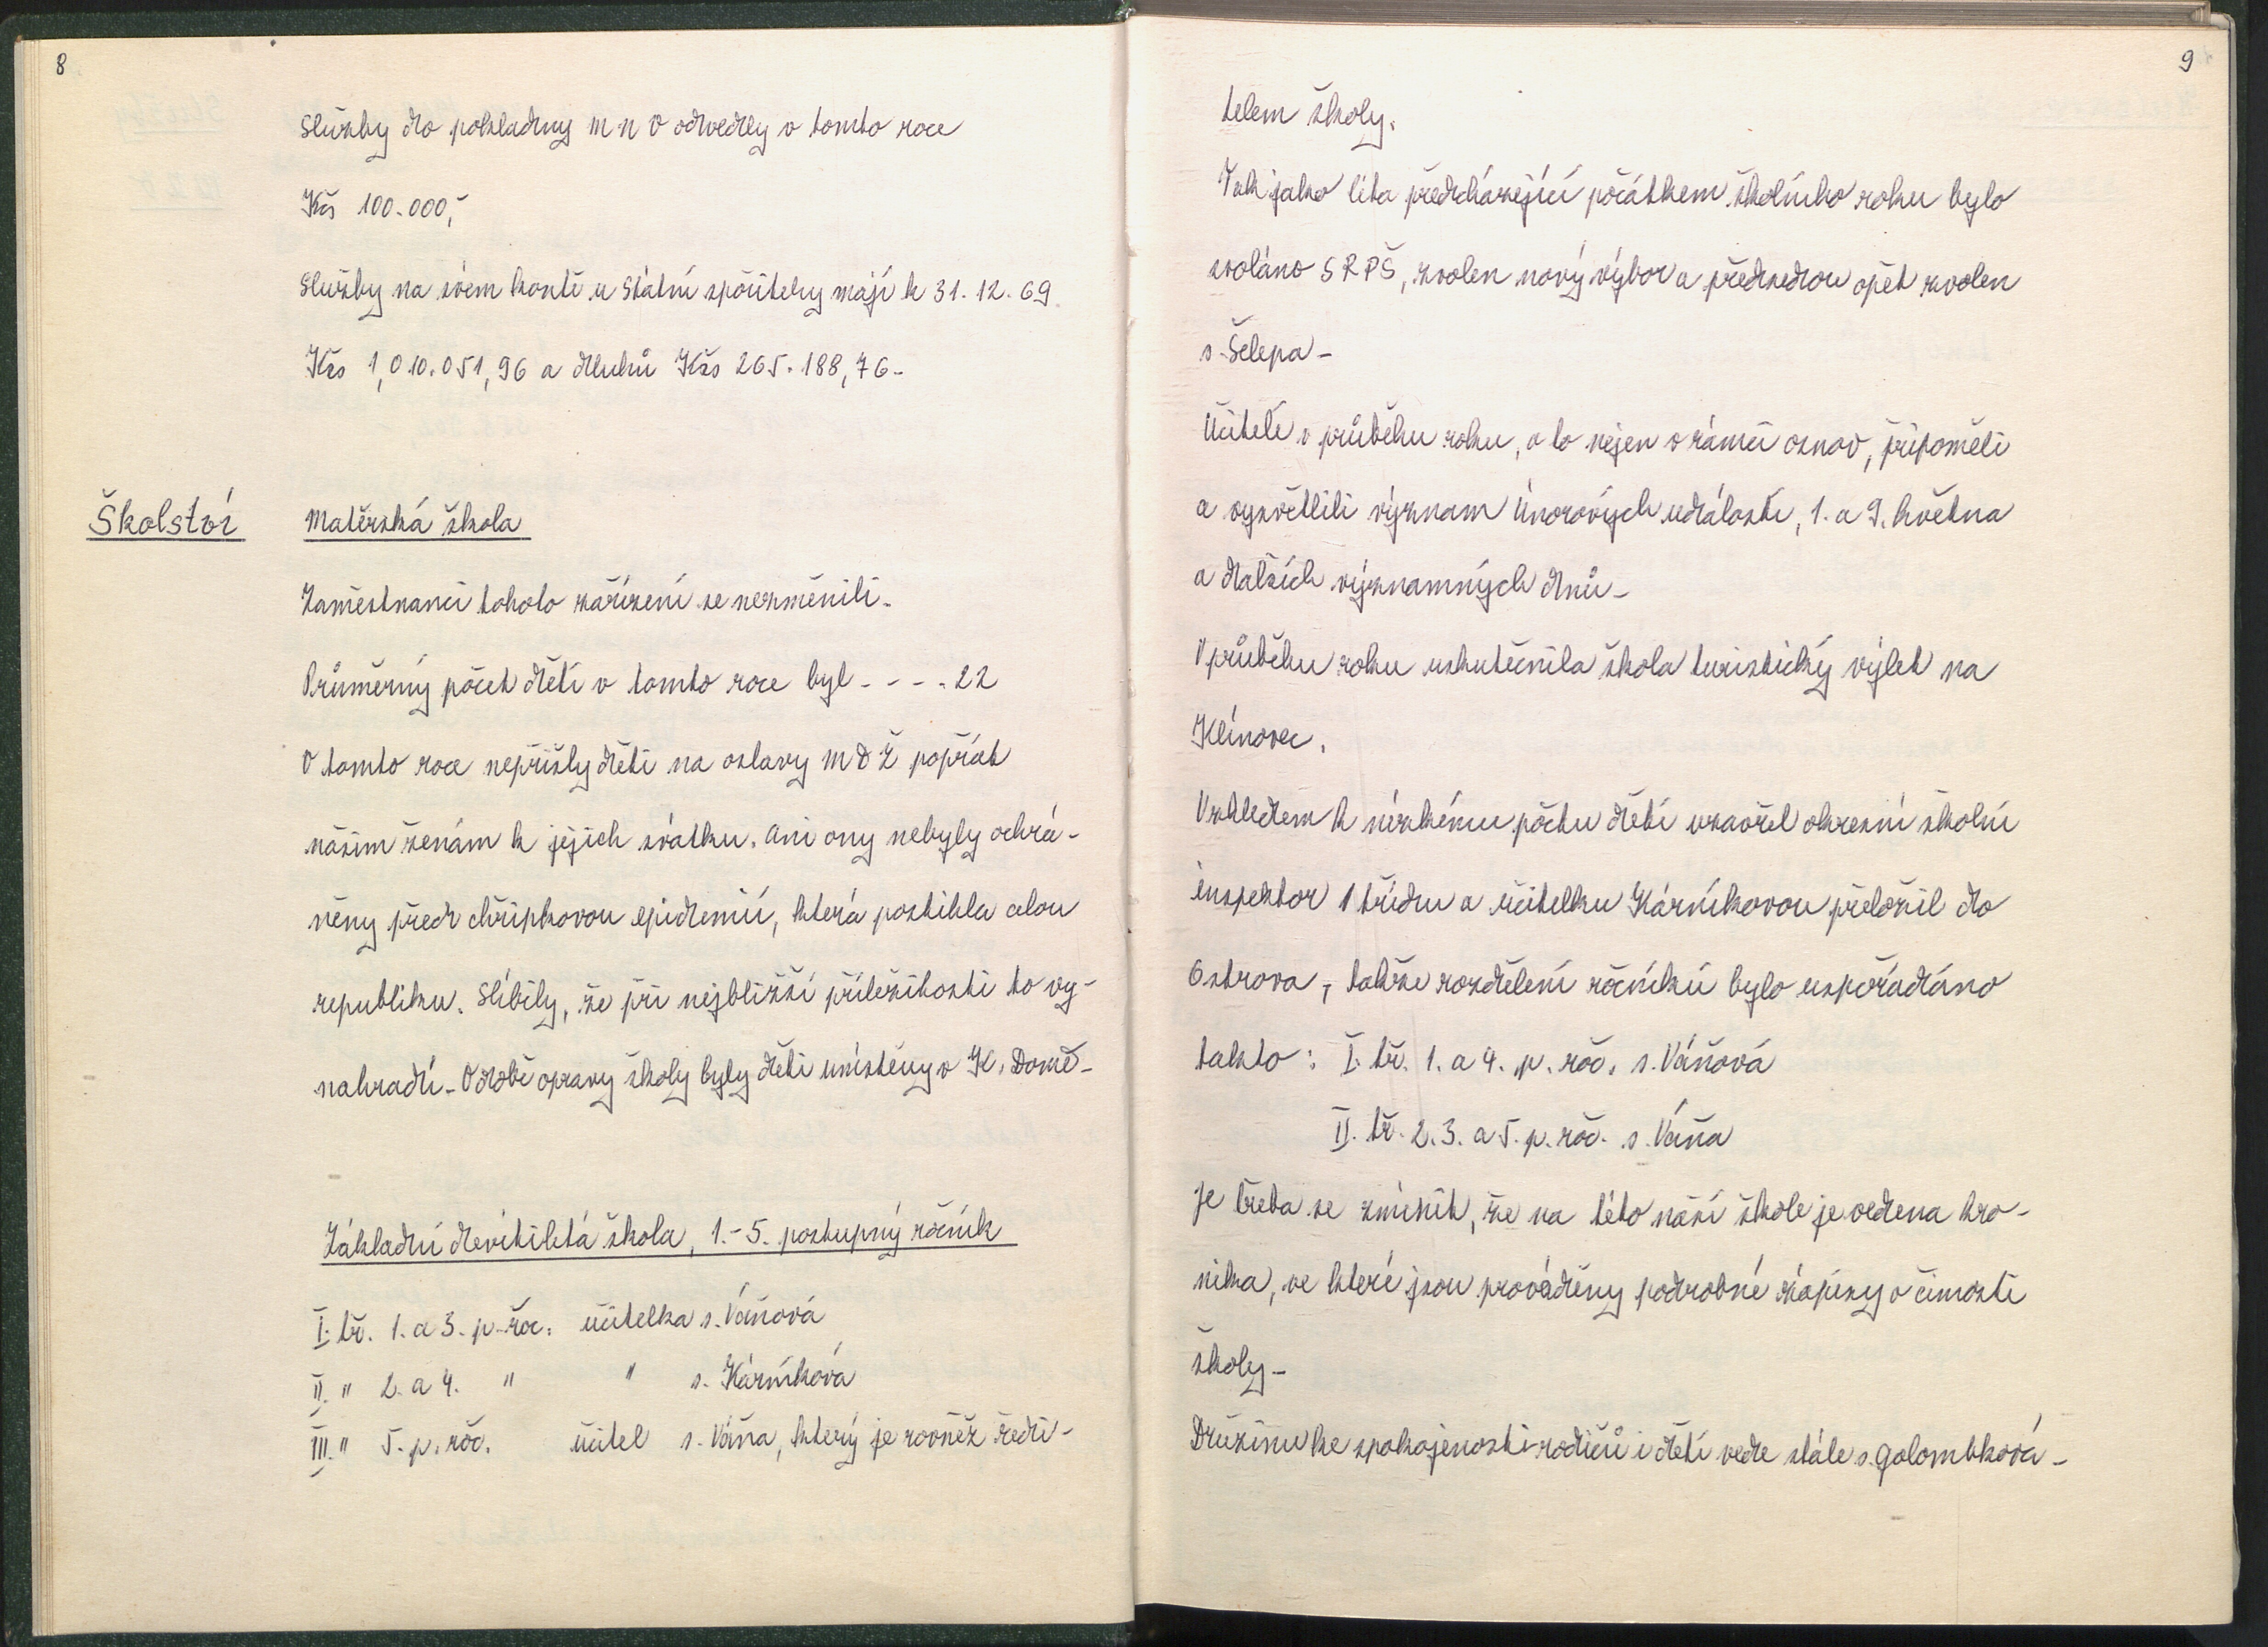 8
Služby do pokladny MNV odvedly v tomto roce
Kčs 100.000,-
Služby na svém kontě u Státní spořitelny mají k 31.12.69
Kčs 1,010.051,96 a dluhů Kčs 265.188,76.
Školství
Mateřská škola
Zaměstnanci tohoto zařízení se nezměnili.
Průměrný počet dětí v tomto roce byl - - - . 22
V tomto roce nepřišly děti na oslavy MDŽ popřát
našim ženám k jejich svátku. Ani ony nebyly ochrá-
něny před chřipkovou epidemií, která postihla celou
republiku. Slíbily, že při nejbližší příležitosti to vy-
nahradí. V době opravy školy byly děti umístěny v K. Domě.
Základní devítiletá škola, 1.-5. postupný ročník
I. tř. 1. a 3. p. roč. učitelka s. Váňová
II. " 2. a 4. " " s. Kárníková
III. " 5. p. roč. učitel s. Váňa, který je rovněž ředi-
9
telem školy.
Tak jako léta předcházející počátkem školního roku bylo
svoláno SRPŠ, zvolen nový výbor a předsedou opět zvolen
s. Šelepa.
Učitelé v průběhu roku, a to nejen v rámci osnov, připoměli
a vysvětlili význam Únorových událostí, 1. a 9. května
a dalších významných dnů.
V průběhu roku uskutečnila škola turistický výlet na
Klínovec.
Vzhledem k nízkému počtu dětí uzavřel okresní školní
inspektor 1 třídu a učitelku Kárníkovou přeložil do
Ostrova, takže rozdělení ročníků bylo uspořádáno
takto: I. tř. 1. a 4. p. roč. s. Váňová
II. tř. 2. 3. a 5. p. roč. s. Váňa
Je třeba se zmínit, že na této naší škole je vedena kro-
nika, ve které jsou prováděny podrobné zápisy o činnosti
školy.
Družinu ke spokojenosti rodičů i dětí vede stále s. Golombková.